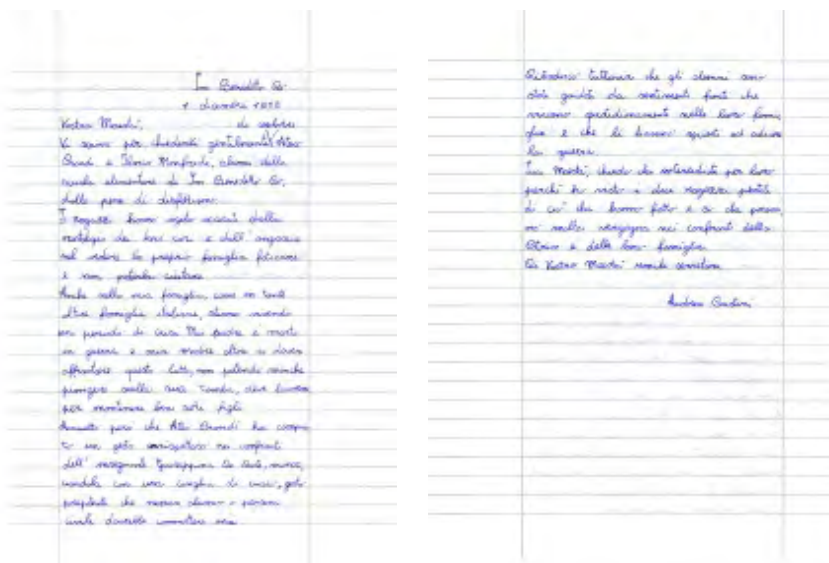 San Benedetto Po
9 dicembre 1918
Vostra Maestà, di esonerare
Vi scrivo per chiedervi gentilmente Atos
e Silvio Monfredi, alunni della
scuola elementare di San Benedetto Po,
dalle pene di disfattismo.
I ragazzi hanno agito accecati dalla
nostalgia dei loro cari e dall' angoscia
nel vedere la propria famiglia faticare
e non poterla aiutare.
Anche nella mia famiglia, come in tante
altre famiglie italiane, stiamo vivendo
un periodo di crisi. Mio padre è morto
in guerra e mia madre oltre a dover
affrontare questo lutto, non potendo neanche
piangere sulla sua tomba, deve lavorare
per mantenere ben sette figli.
Ammetto però che Atos ha compiu
to un gesto irrispettoso nei confronti
dell' insegnante Giuseppina De, minac
ciandola con una coniglia di, gesto
che nessun alunno o persona
civile dovrebbe commettere mai.
Ribadisco tuttavia che gli alunni sono
stati guidati da sentimenti forti che
vivono quotidianamente nelle loro fami
glie e che li hanno spinti ad odiare
la guerra.
Sua Maestà, chiedo che intercediate per loro
perché ho visto i due ragazzi pentiti
di ciò che hanno fatto e so che prova
no molta vergogna nei confronti della
Patria e della loro famiglia.
Di Vostra Maestà umile servitore
Andrea